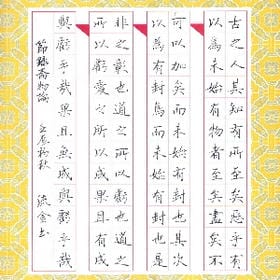 古之人其知有所至矣惡乎至有
以為未始有物者至矣盡矣不
可以加矣而未始有封也其次
以為有封焉而未始有是非也是
非之彰也道之所以虧也道之
所以虧愛之所以成果且有成
與虧乎哉果且無成與虧乎哉
節錄齊物論
初秋